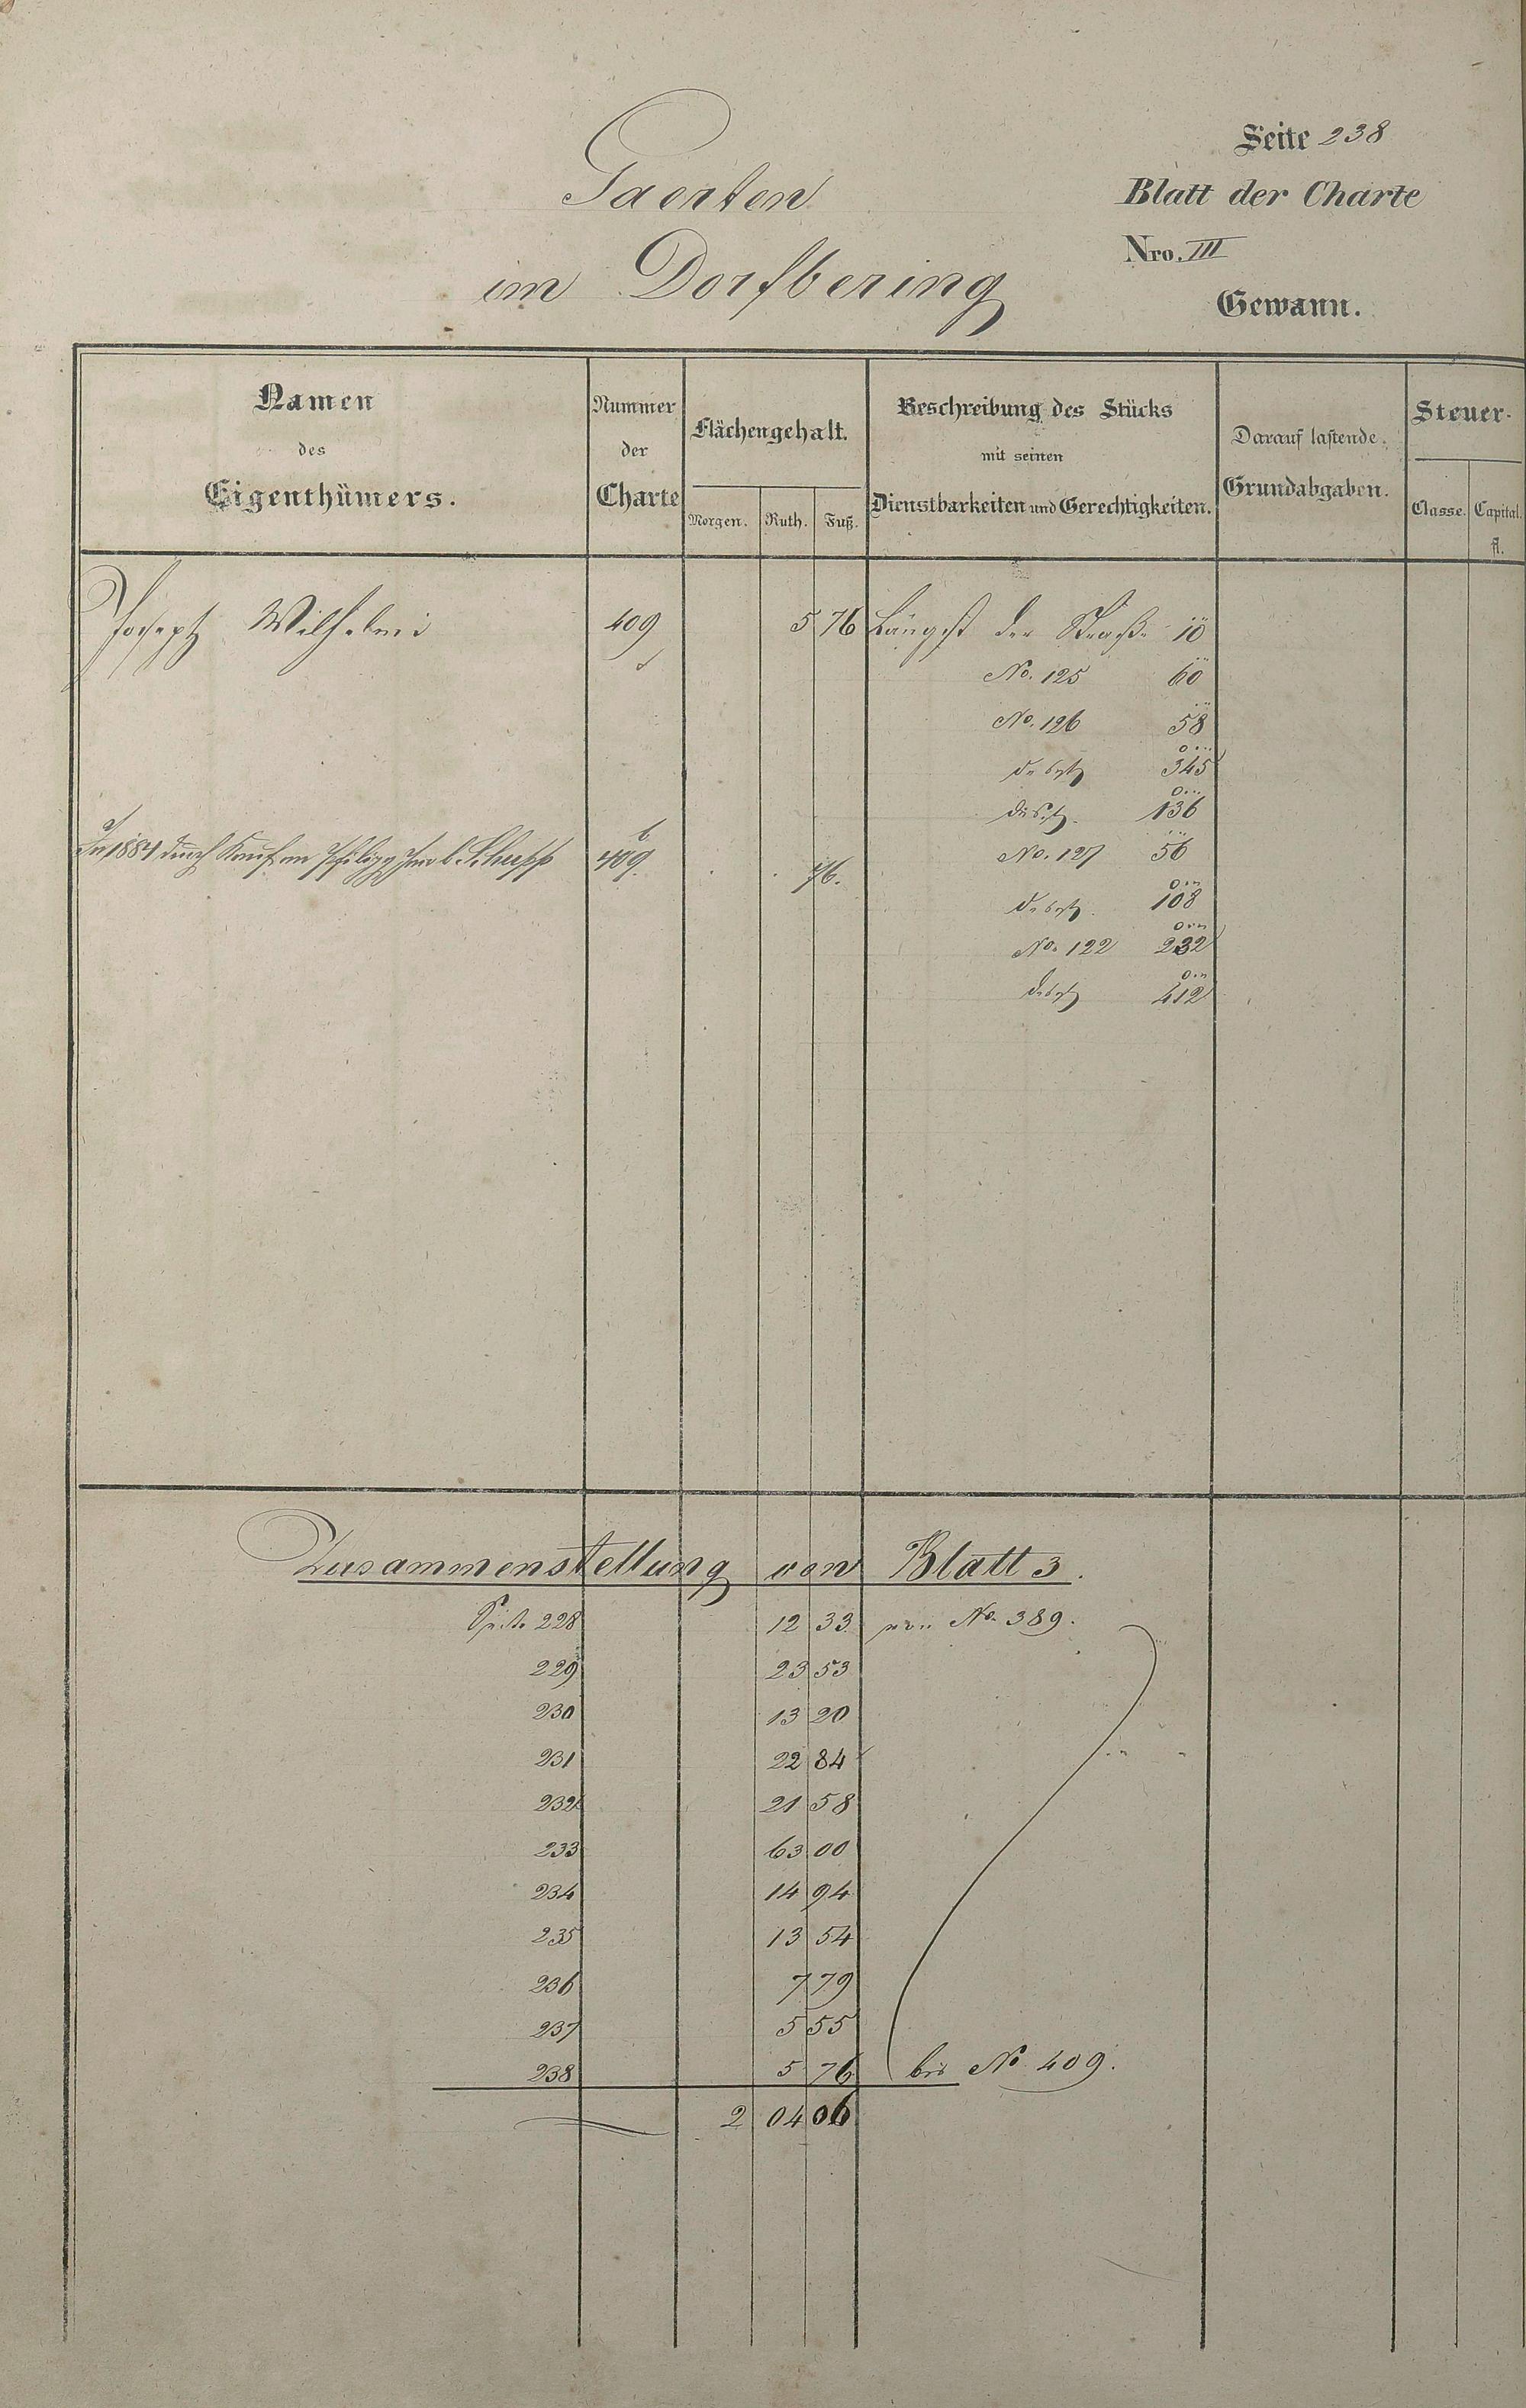 Seite 238
Gaerten
Blatt der Charte
im Dorfbering
Nro. III
Gewann.
Namen
des
Eigenthümers.
Nummer
der
Charte
Flächengehalt.
Morgen. Ruth. Fuß.
Beschreibung des Stücks
mit seinen
Dienstbarkeiten und Gerechtigkeiten.
Darauf lastende
Grundabgaben.
Steuer-
Classe. Capital.
fl.
Joseph Wilhelmi 409 5 76 Längst der Straße 10
No. 125 60
No. 126 58
345
136
In 1884 durch Kauf an Philipp Jacob Schupp 409. 76.
b
No. 127 56
108
No. 122 232
412
Zusammenstellung von Blatt 3.
Seite 228 12 33 von No. 389.
229 23 53
230 13 20
231 22 84
232 21 58
233 63 00
234 14 94
235 13 54
236 7 79
237 5 55
238 5 76 bis No. 409.
2 04 06